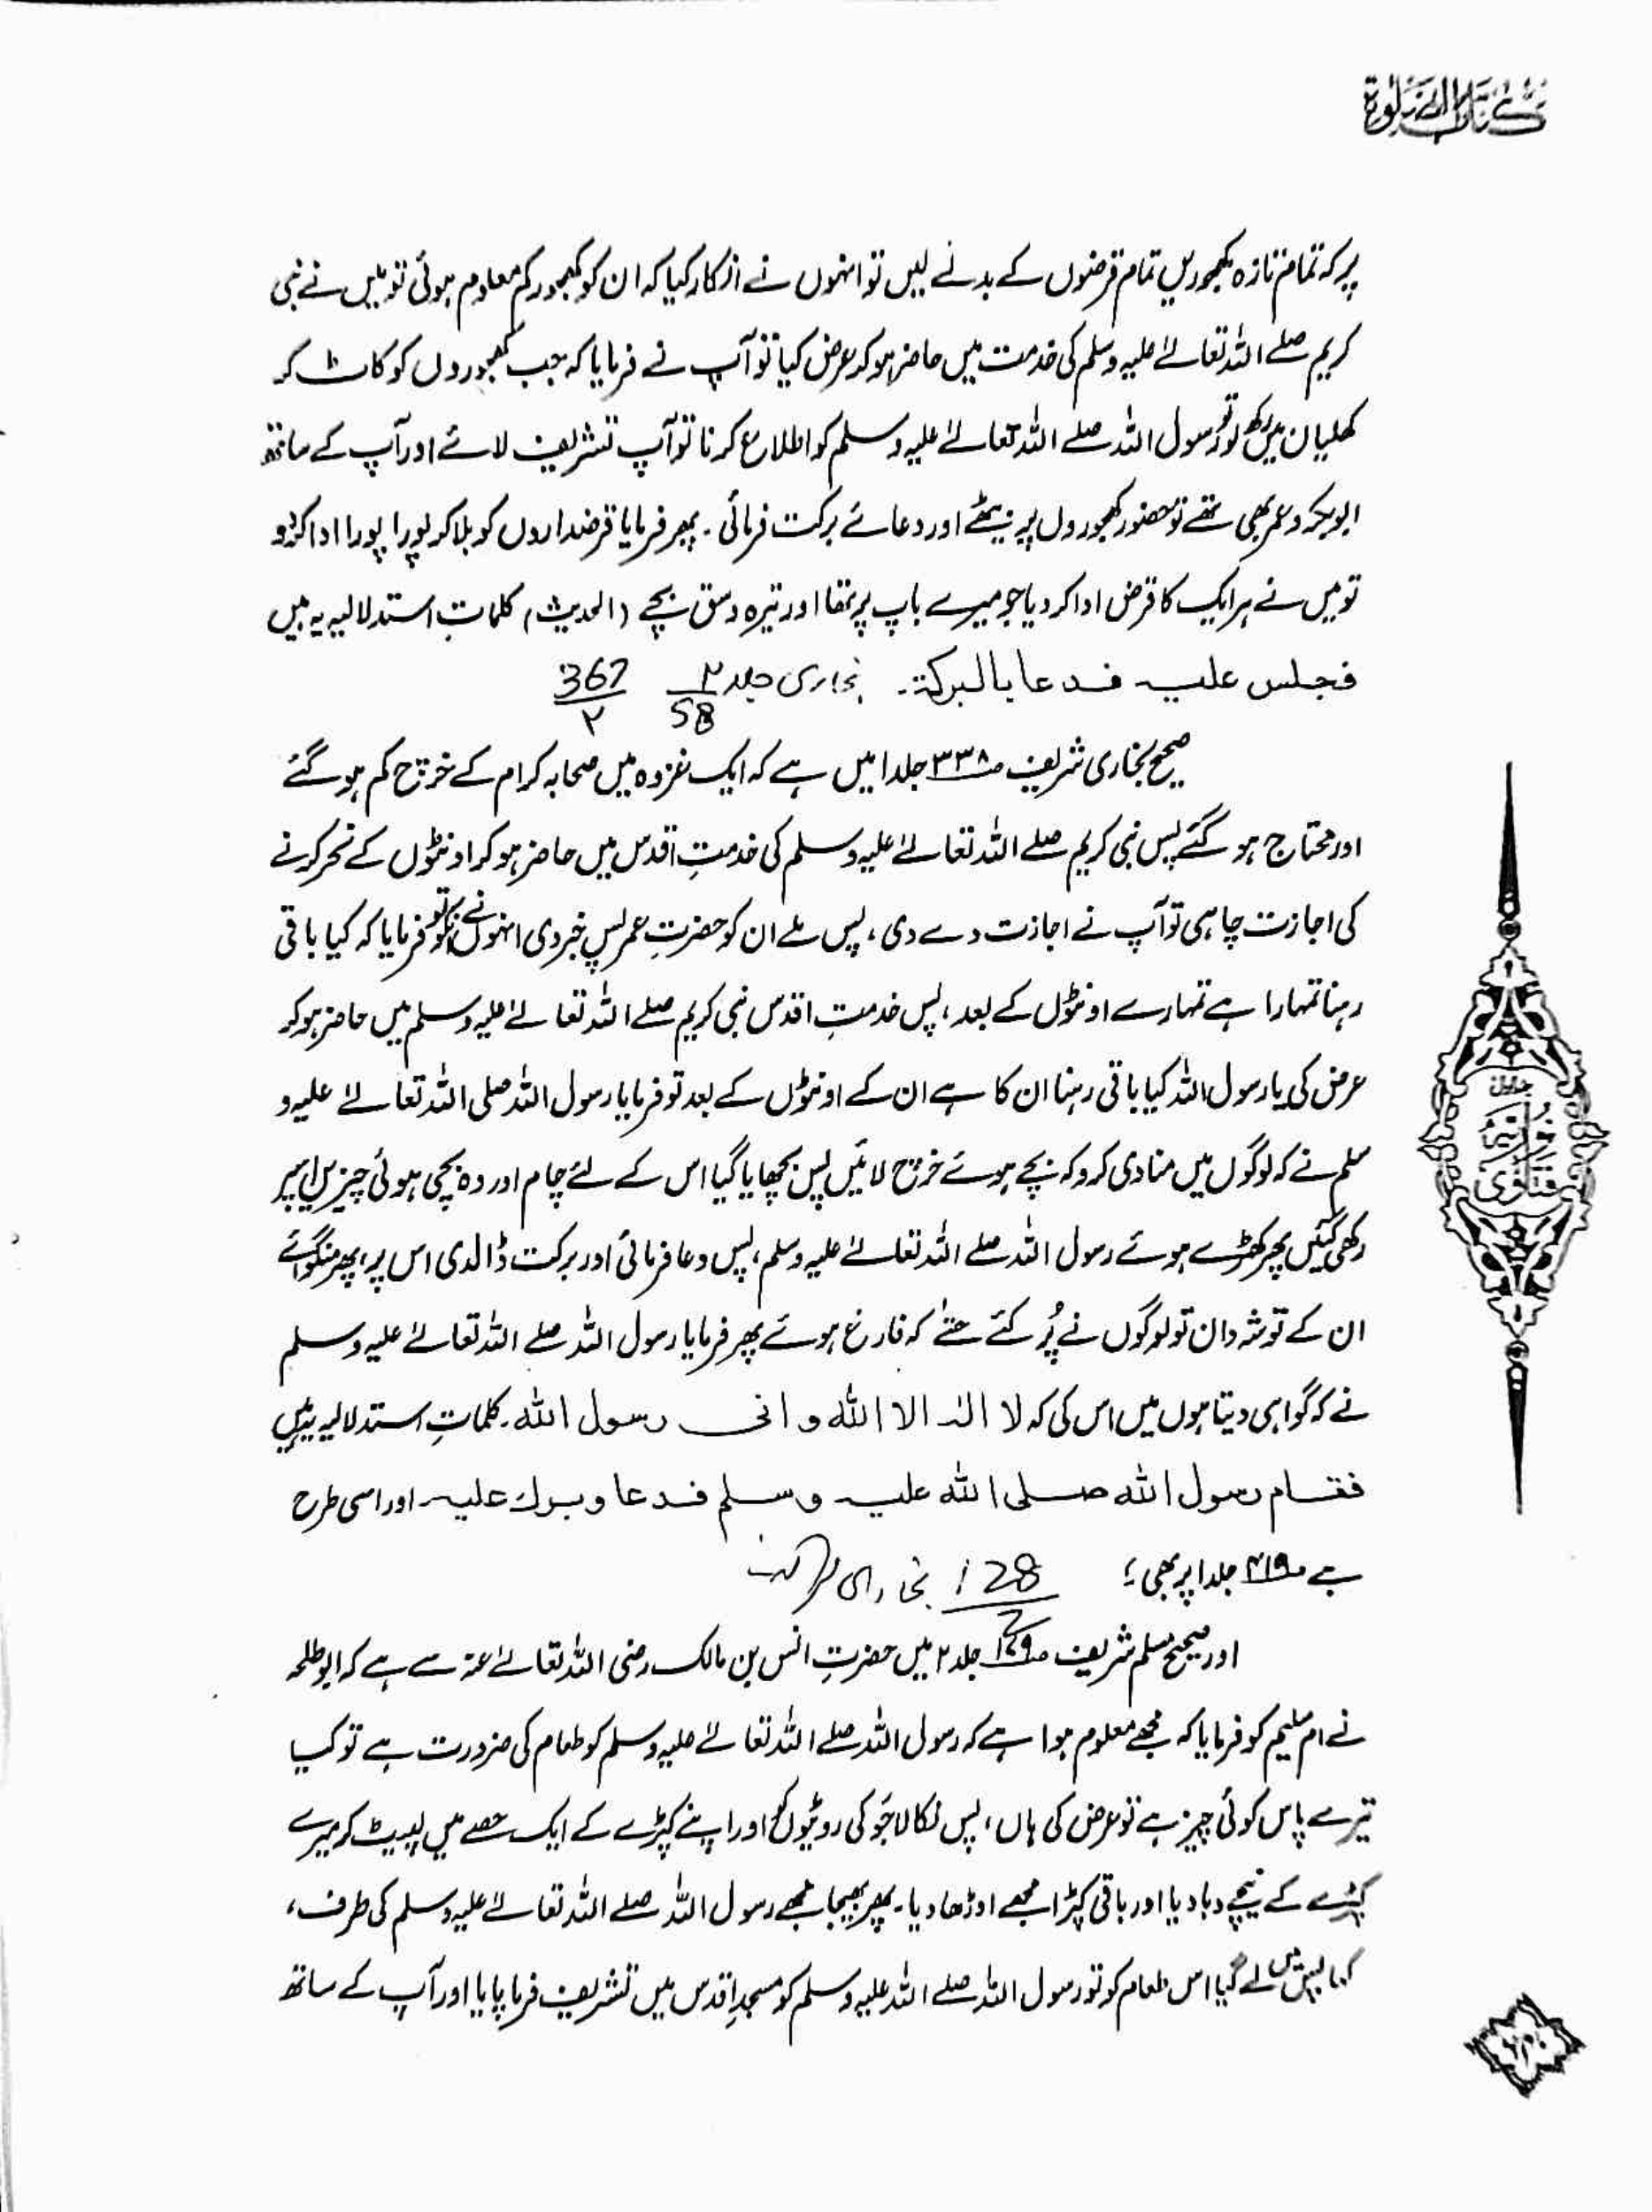 کتاب الصلوٰۃ
پر کہ تمام تازہ کھجوریں تمام قرضوں کے بدلے لیں تو انہوں نے انکار کیا کہ ان کو کھجور کم معلوم ہوئی تو میں نے نبی
کریم صلے اللہ تعالےٰ علیہ وسلم کی خدمت میں حاضر ہو کر عرض کیا تو آپ نے فرمایا کہ جب کھجوروں کو کاٹ کر
کھلیان میں رکھو تو رسول اللہ صلے اللہ تعالےٰ علیہ وسلم کو اطلاع کرنا تو آپ تشریف لائے اور آپ کے ساتھ
ابوبکر و عمر بھی تھے تو حضور کھجوروں پر بیٹھے اور دعائے برکت فرمائی۔ پھر فرمایا قرضداروں کو بلا کر پورا پورا ادا کر دو
تو میں نے ہر ایک کا قرض ادا کر دیا جو میرے باپ پر تھا اور تیرہ وسق بچے (الحدیث) کلماتِ استدلالیہ یہ ہیں
فجلس علیہ فدعا بالبرکۃ۔ بخاری جلد ۲ 58 367 ۲
صحیح بخاری شریف ص۳۳۸ جلد۱ میں ہے کہ ایک غزوہ میں صحابہ کرام کے خرچ کم ہو گئے
اور محتاج ہو گئے پس نبی کریم صلے اللہ تعالےٰ علیہ وسلم کی خدمتِ اقدس میں حاضر ہو کر اونٹوں کے نحر کرنے
کی اجازت چاہی تو آپ نے اجازت دے دی، پس ملے ان کو حضرتِ عمر پس خبر دی انہوں نے انکو تو فرمایا کہ کیا باقی
رہنا تمہارا ہے تمہارے اونٹوں کے بعد، پس خدمتِ اقدس نبی کریم صلے اللہ تعالےٰ علیہ وسلم میں حاضر ہو کر
عرض کی یا رسول اللہ کیا باقی رہنا ان کا ہے ان کے اونٹوں کے بعد تو فرمایا رسول اللہ صلی اللہ تعالےٰ علیہ و
سلم نے کہ لوگوں میں منادی کر دو کہ بچے ہوئے خرچ لائیں پس بچھایا گیا اس کے لئے چام اور وہ بچی ہوئی چیزیں اس پر
رکھی گئیں پھر کھڑے ہوئے رسول اللہ صلے اللہ تعالےٰ علیہ وسلم، پس دعا فرمائی اور برکت ڈالدی اس پر، پھر منگوائے
ان کے توشہ دان تو لوگوں نے پُر کئے حتےٰ کہ فارغ ہوئے پھر فرمایا رسول اللہ صلے اللہ تعالےٰ علیہ وسلم
نے کہ گواہی دیتا ہوں میں اس کی کہ لا الہ الا اللہ و انی رسول اللہ۔ کلماتِ استدلالیہ یہ ہیں
فقام رسول اللہ صلی اللہ علیہ وسلم فدعا و برک علیہ اور اسی طرح
ہے ص۴۱۹ جلد۱ پر بھی؛ 128 بخاری
اور صحیح مسلم شریف ص۱۷۹ جلد ۲ میں حضرتِ انس بن مالک رضی اللہ تعالےٰ عنہ سے ہے کہ ابو طلحہ
نے ام سلیم کو فرمایا کہ مجھے معلوم ہوا ہے کہ رسول اللہ صلے اللہ تعالےٰ علیہ وسلم کو طعام کی ضرورت ہے تو کیا
تیرے پاس کوئی چیز ہے تو عرض کی ہاں، پس نکالا جَو کی روٹیوں کو اور اپنے کپڑے کے ایک حصے میں لپیٹ کر میرے
کپڑے کے نیچے دبا دیا اور باقی کپڑا مجھے اوڑھا دیا۔ پھر بھیجا مجھے رسول اللہ صلے اللہ تعالےٰ علیہ وسلم کی طرف،
کہا پس میں لے گیا اس طعام کو تو رسول اللہ صلے اللہ علیہ وسلم کو مسجدِ اقدس میں تشریف فرما پایا اور آپ کے ساتھ
فتاویٰ نوریہ